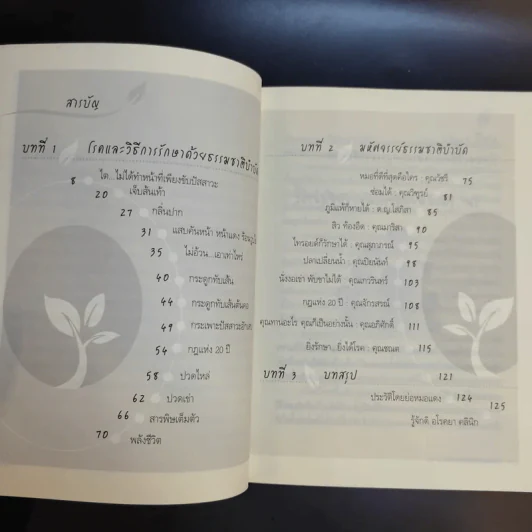 สารบัญ
บทที่ 1 โรคและวิธีการรักษาด้วยธรรมชาติบำบัด
8 ไต...ไม่ได้ทำหน้าที่เพียงขับปัสสาวะ
20 เจ็บส้นเท้า
27 กลิ่นปาก
31 แสบคันหน้า หน้าแดง
35 ไม่อ้วน...เอาเท่าไหร่
40 กระดูกทับเส้น
44 กระดูกทับเส้นต้นคอ
49 กระเพาะปัสสาวะอักเสบ
54 กฎแห่ง 20 ปี
58 ปวดไหล่
62 ปวดเข่า
66 สารพิษเต็มตัว
70 พลังชีวิต
บทที่ 2 มหัศจรรย์ธรรมชาติบำบัด
หมอที่ดีที่สุดคือใคร : คุณวัชรี 75
ซ่อมได้ : คุณวิฑูรย์ 81
ภูมิแพ้ก็หายได้ : ด.ญ.โสภิสา 85
สิว ท้องอืด : คุณมาริสา 90
ไทรอยด์ก็รักษาได้ : คุณสุภาภรณ์ 95
ปลาเปลี่ยนน้ำ : คุณปิยนันท์ 98
นั่งงอเข่า พับขาไม่ได้ : คุณเกวรินทร์ 103
กฎแห่ง 20 ปี : คุณจักรสรณ์ 108
คุณทานอะไร คุณก็เป็นอย่างนั้น : คุณอภิศักดิ์ 111
ยิ่งรักษา...ยิ่งได้โรค : คุณชเนต 115
บทที่ 3 บทสรุป 121
ประวัติโดยย่อหมอแดง 124
รู้จักดิ อโรคยา คลินิก 125